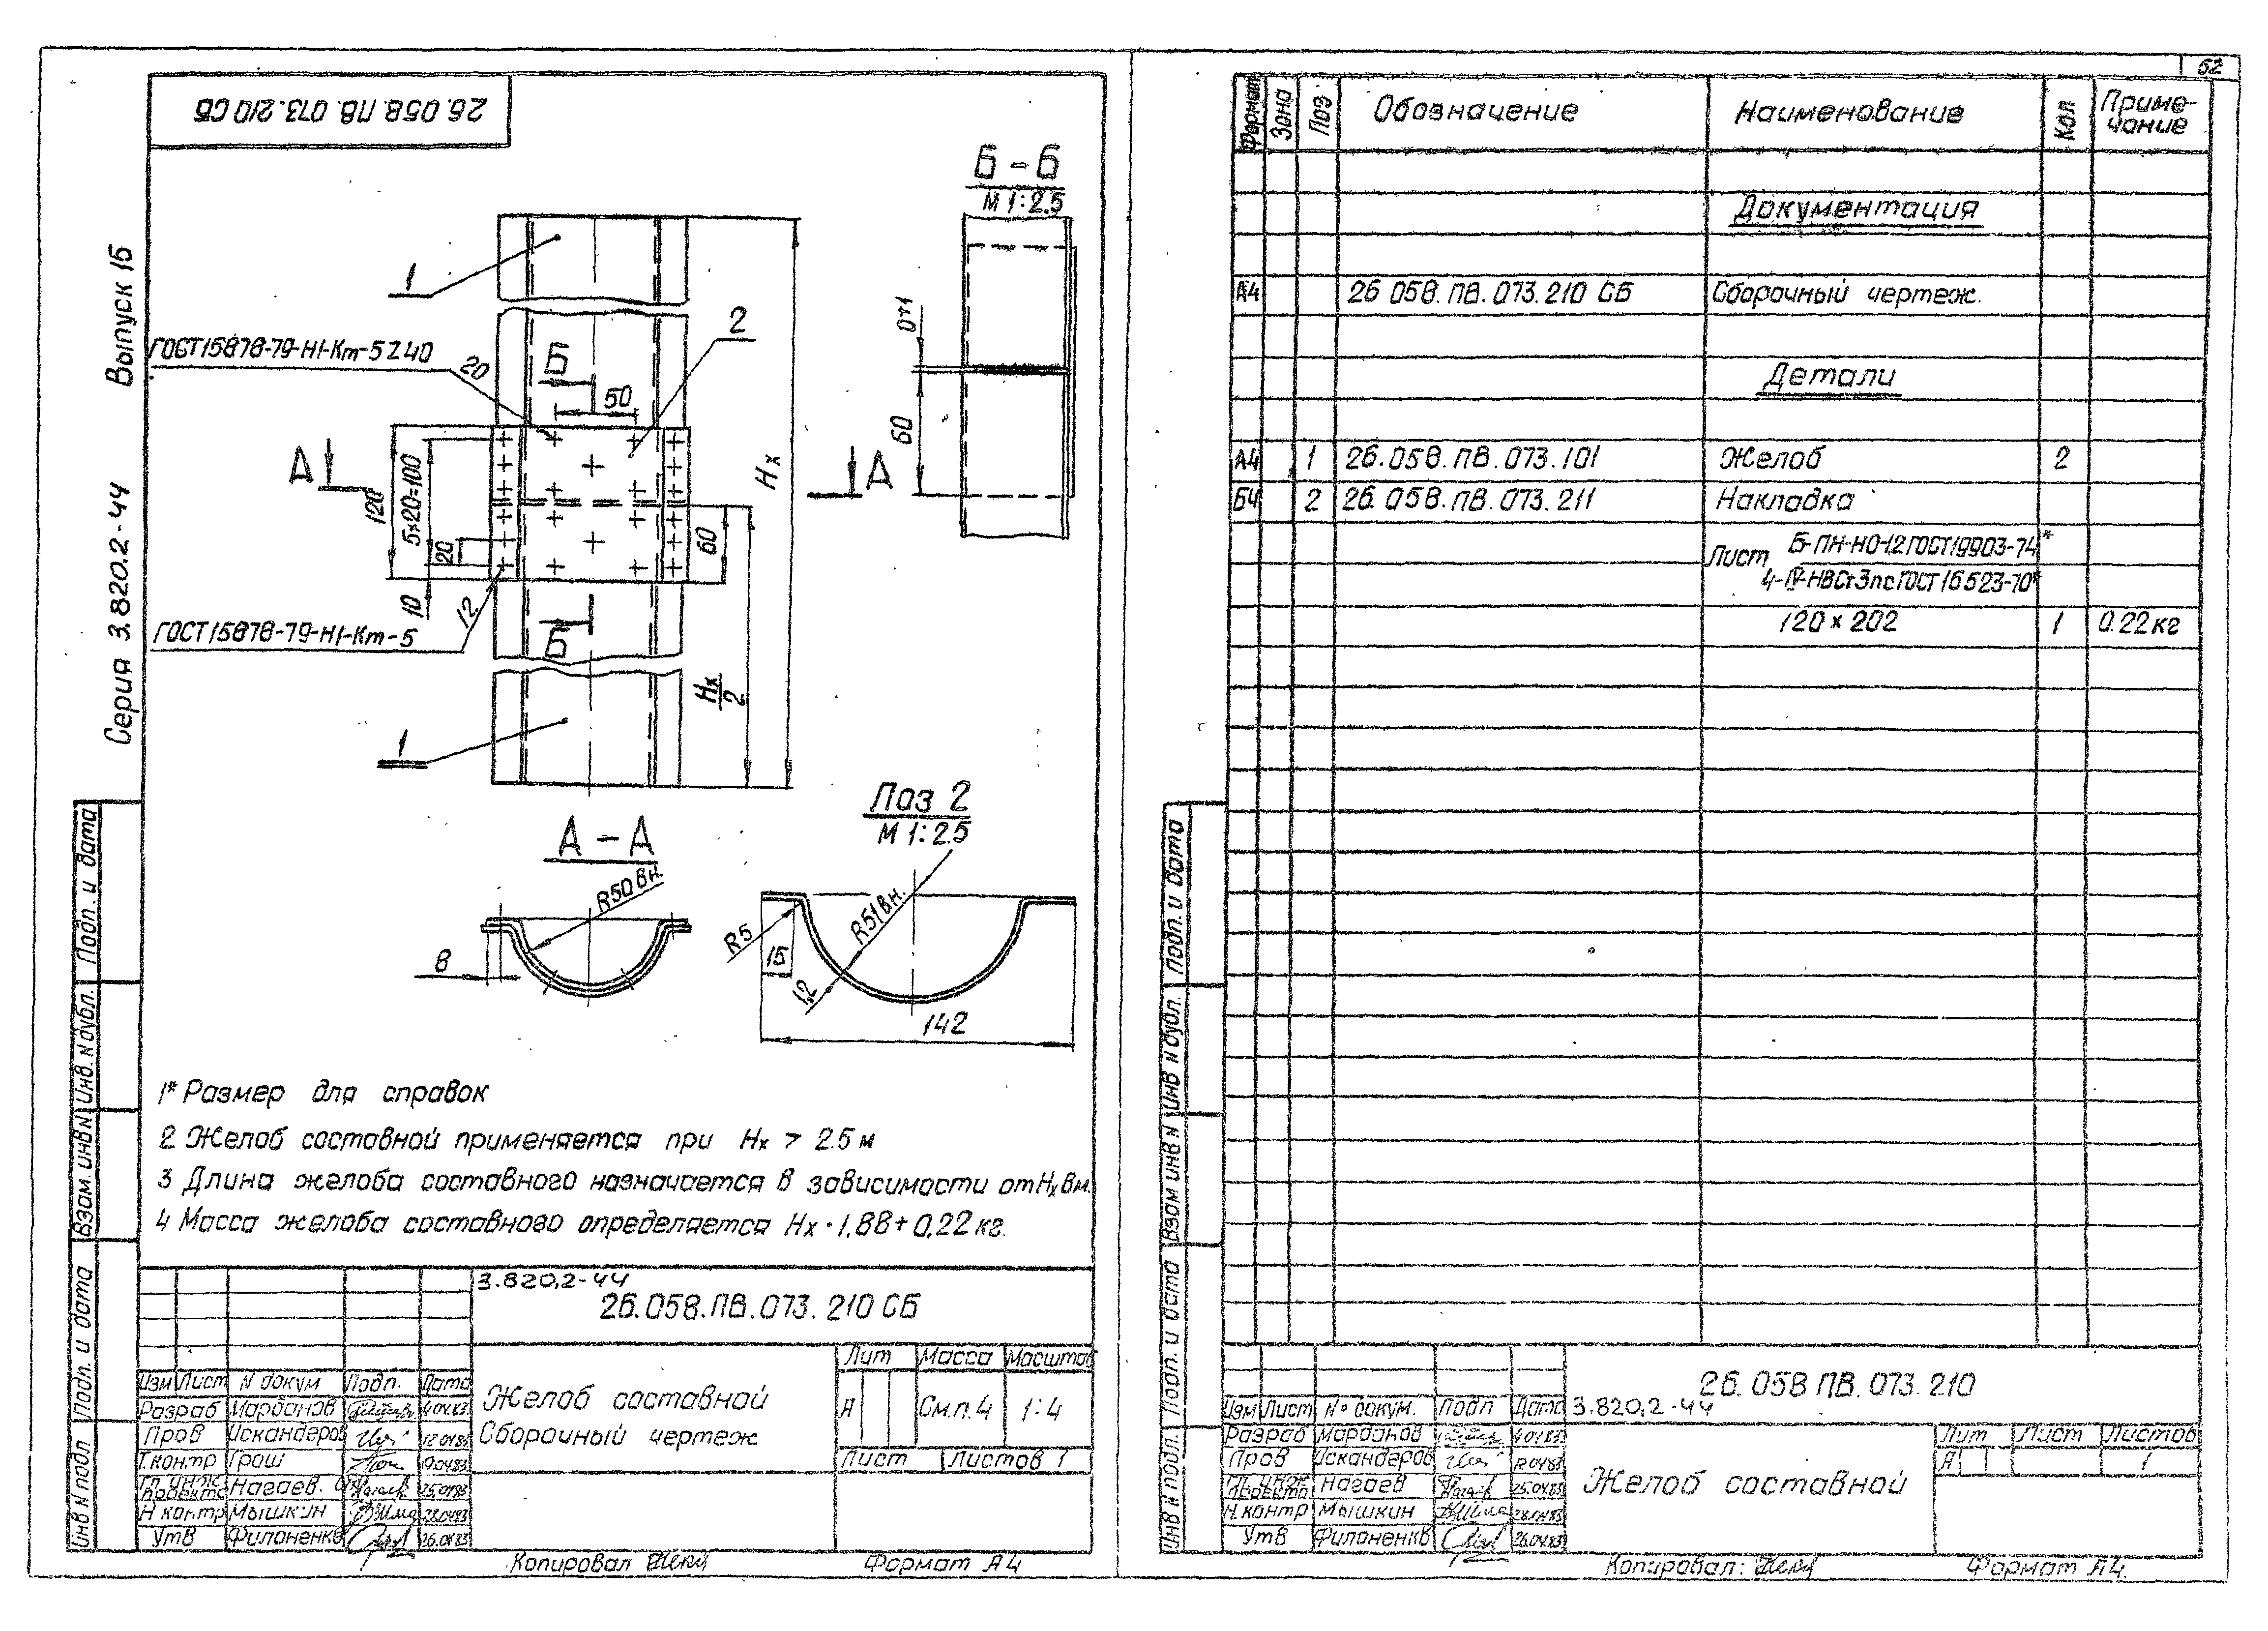 26.058.ПВ.073.210 СБ
Серия 3.820.2-44 Выпуск 15
Б - Б
М 1:2.5
1
2
ГОСТ15878-79-Н1-Кт-5Z40
20
Б
50
А
А
Нх
120
5×20=100
20
10
12
60
ГОСТ15878-79-Н1-Кт-5
Б
Нх
2
1
0+1
60
Поз 2
М 1:2.5
А - А
R50 вн.
8
R5
R51вн.
15
1,2
142
1* Размер для справок
2 Желоб составной применяется при Нх > 2.5 м
3 Длина желоба составного назначается в зависимости от Нх в м.
4 Масса желоба составного определяется Нх · 1,88 + 0,22 кг.
3.820,2-44
26.058.ПВ.073.210 СБ
Желоб составной
Сборочный чертеж
Лит Масса Масштаб
А См.п.4 1:4
Лист Листов 1
Изм Лист N докум Подп. Дата
Разраб Марданов 4.04.83
Пров Искандеров 12.04.83
Т.контр Грош 19.04.83
Гл. инж. проекта Нагаев. 25.04.83
Н контр Мышкин 28.04.83
Утв Филоненко 26.04.83
Копировал
Формат А4
Подп. и дата
Инв. N дубл.
Взам. инв N
Подп. и дата
Инв N подл
52
Формат Зона Поз Обозначение Наименование Кол Приме-
чание
Документация
А4 26 058. ПВ. 073. 210 СБ Сборочный чертеж.
Детали
А4 1 26.058.ПВ.073.101 Желоб 2
Б4 2 26.058.ПВ.073.211 Накладка
Лист Б-ПН-НО-1,2 ГОСТ19903-74*
4-IV-НВСт3пс ГОСТ16523-70*
120 × 202 1 0.22 кг
26.058 ПВ.073.210
3.820,2-44
Изм Лист № докум. Подп Дата
Разраб Марданов 4.04.83
Пров Искандеров 12.04.83
Гл. инж проекта Нагаев 25.04.83
Н.контр Мышкин 28.04.83
Утв Филоненко 26.04.83
Желоб составной
Лит Лист Листов
А 1
Копировал:
Формат А4.
Подп. и дата
Инв N дубл.
Взам инв N
Подп. и дата
Инв N подл.